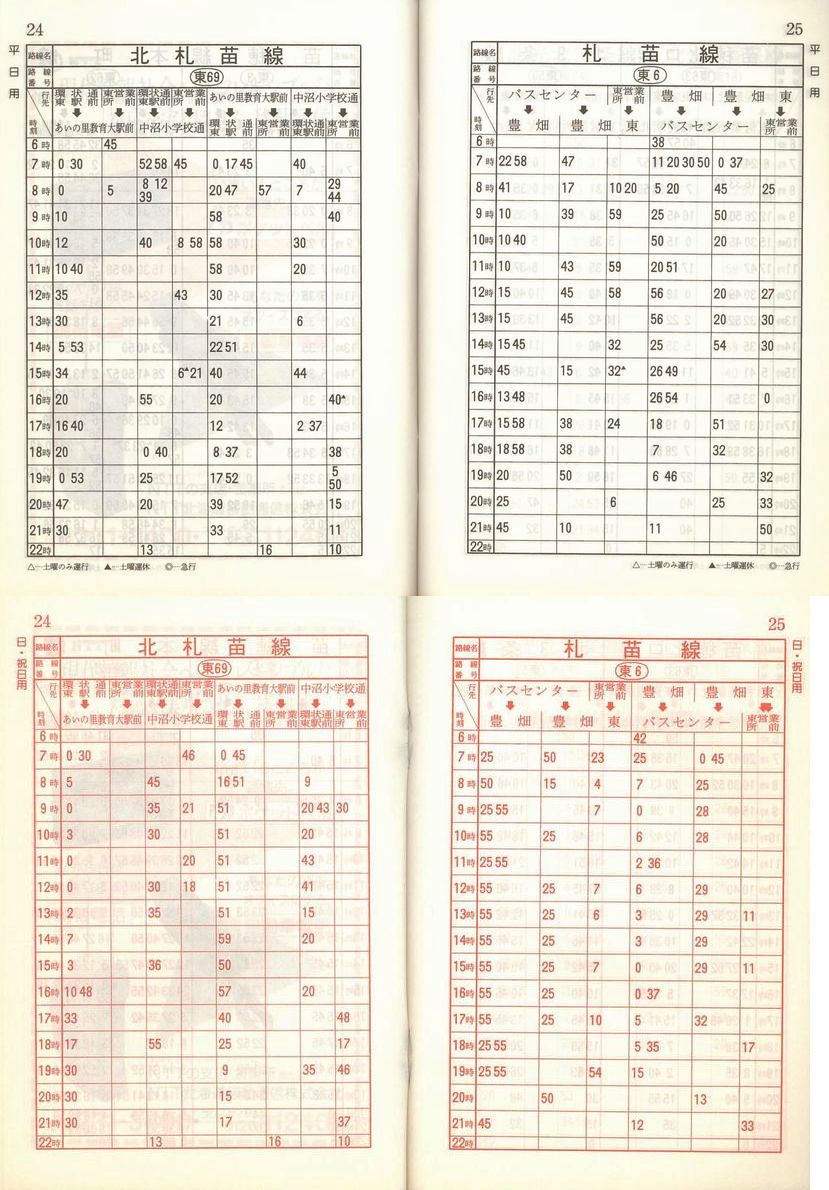 24
平日用
路線名 北札苗線
路線番号 東69
行先 環状通東駅前 東営業所前 環状通東駅前 東営業所前 あいの里教育大駅前 中沼小学校通
時刻 あいの里教育大駅前 中沼小学校通 環状通東駅前 東営業所前 環状通東駅前 東営業所前
6時 45
7時 0 30 52 58 45 0 17 45 40
8時 0 5 8 12 39 20 47 57 7 29 44
9時 10 58 40
10時 12 40 8 58 58 30
11時 10 40 58 20
12時 35 43 30
13時 30 21 6
14時 5 53 22 51
15時 34 6▲ 21 40 44
16時 20 55 20 40▲
17時 16 40 12 2 37
18時 20 0 40 8 37 38
19時 0 53 25 17 52 5 50
20時 47 20 39 15
21時 30 33 11
22時 13 16 10
△…土曜のみ運行 ▲…土曜運休 ◎…急行
25
平日用
路線名 札苗線
路線番号 東6
行先 バスセンター 東営業所 豊畑 豊畑東
時刻 豊畑 豊畑東 バスセンター 東営業所
6時 38
7時 22 58 47 11 20 30 50 0 37
8時 41 17 10 20 5 20 45 25
9時 10 39 59 25 50
10時 10 40 50 20
11時 10 43 59 20 51
12時 15 45 58 56 20 27
13時 15 45 56 20 30
14時 15 45 32 25 54 30
15時 45 15 32▲ 26 49
16時 13 48 26 54 0
17時 15 58 38 24 18 51
18時 18 58 38 7 32
19時 20 50 6 46 32
20時 25 6 25 33
21時 45 10 11 50
22時
△…土曜のみ運行 ▲…土曜運休 ◎…急行
24
日・祝日用
路線名 北札苗線
路線番号 東69
行先 環状通東駅前 東営業所前 環状通東駅前 東営業所前 あいの里教育大駅前 中沼小学校通
時刻 あいの里教育大駅前 中沼小学校通 環状通東駅前 東営業所前 環状通東駅前 東営業所前
6時
7時 0 30 46 0 45
8時 5 45 16 51 9
9時 0 35 21 51 20 43 30
10時 3 30 51 20
11時 0 20 51 43
12時 0 30 18 51 41
13時 2 35 51 15
14時 7 59 20
15時 3 36 50
16時 10 48 57 20
17時 33 40 48
18時 17 55 25 17
19時 30 9 35 46
20時 30 15
21時 30 17 37
22時 13 16 10
25
日・祝日用
路線名 札苗線
路線番号 東6
行先 バスセンター 東営業所 豊畑 豊畑東
時刻 豊畑 豊畑東 バスセンター 東営業所
6時 42
7時 25 50 23 25 0 45
8時 50 15 4 7 25
9時 25 55 7 0 28
10時 55 25 6 28
11時 25 55 2 36
12時 55 25 7 6 29
13時 55 25 6 3 29 11
14時 55 25 3 29
15時 55 25 7 0 29 11
16時 55 25 0 37
17時 55 25 10 5 32
18時 25 55 5 35 17
19時 25 55 54 15
20時 50 13
21時 45 12 33
22時